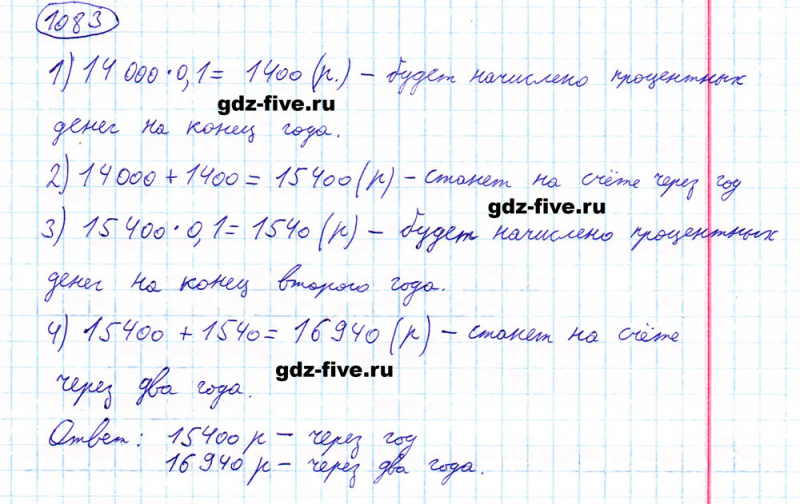 1083
1) 14 000 · 0,1 = 1400 (р.) – будет начислено процентных
gdz-five.ru
денег на конец года.
2) 14000 + 1400 = 15400 (р) – станет на счёте через год
gdz-five.ru
3) 15400 · 0,1 = 1540 (р) – будет начислено процентных
денег на конец второго года.
4) 15400 + 1540 = 16940 (р) – станет на счёте
gdz-five.ru
через два года.
Ответ: 15400 р – через год
16940 р – через два года.